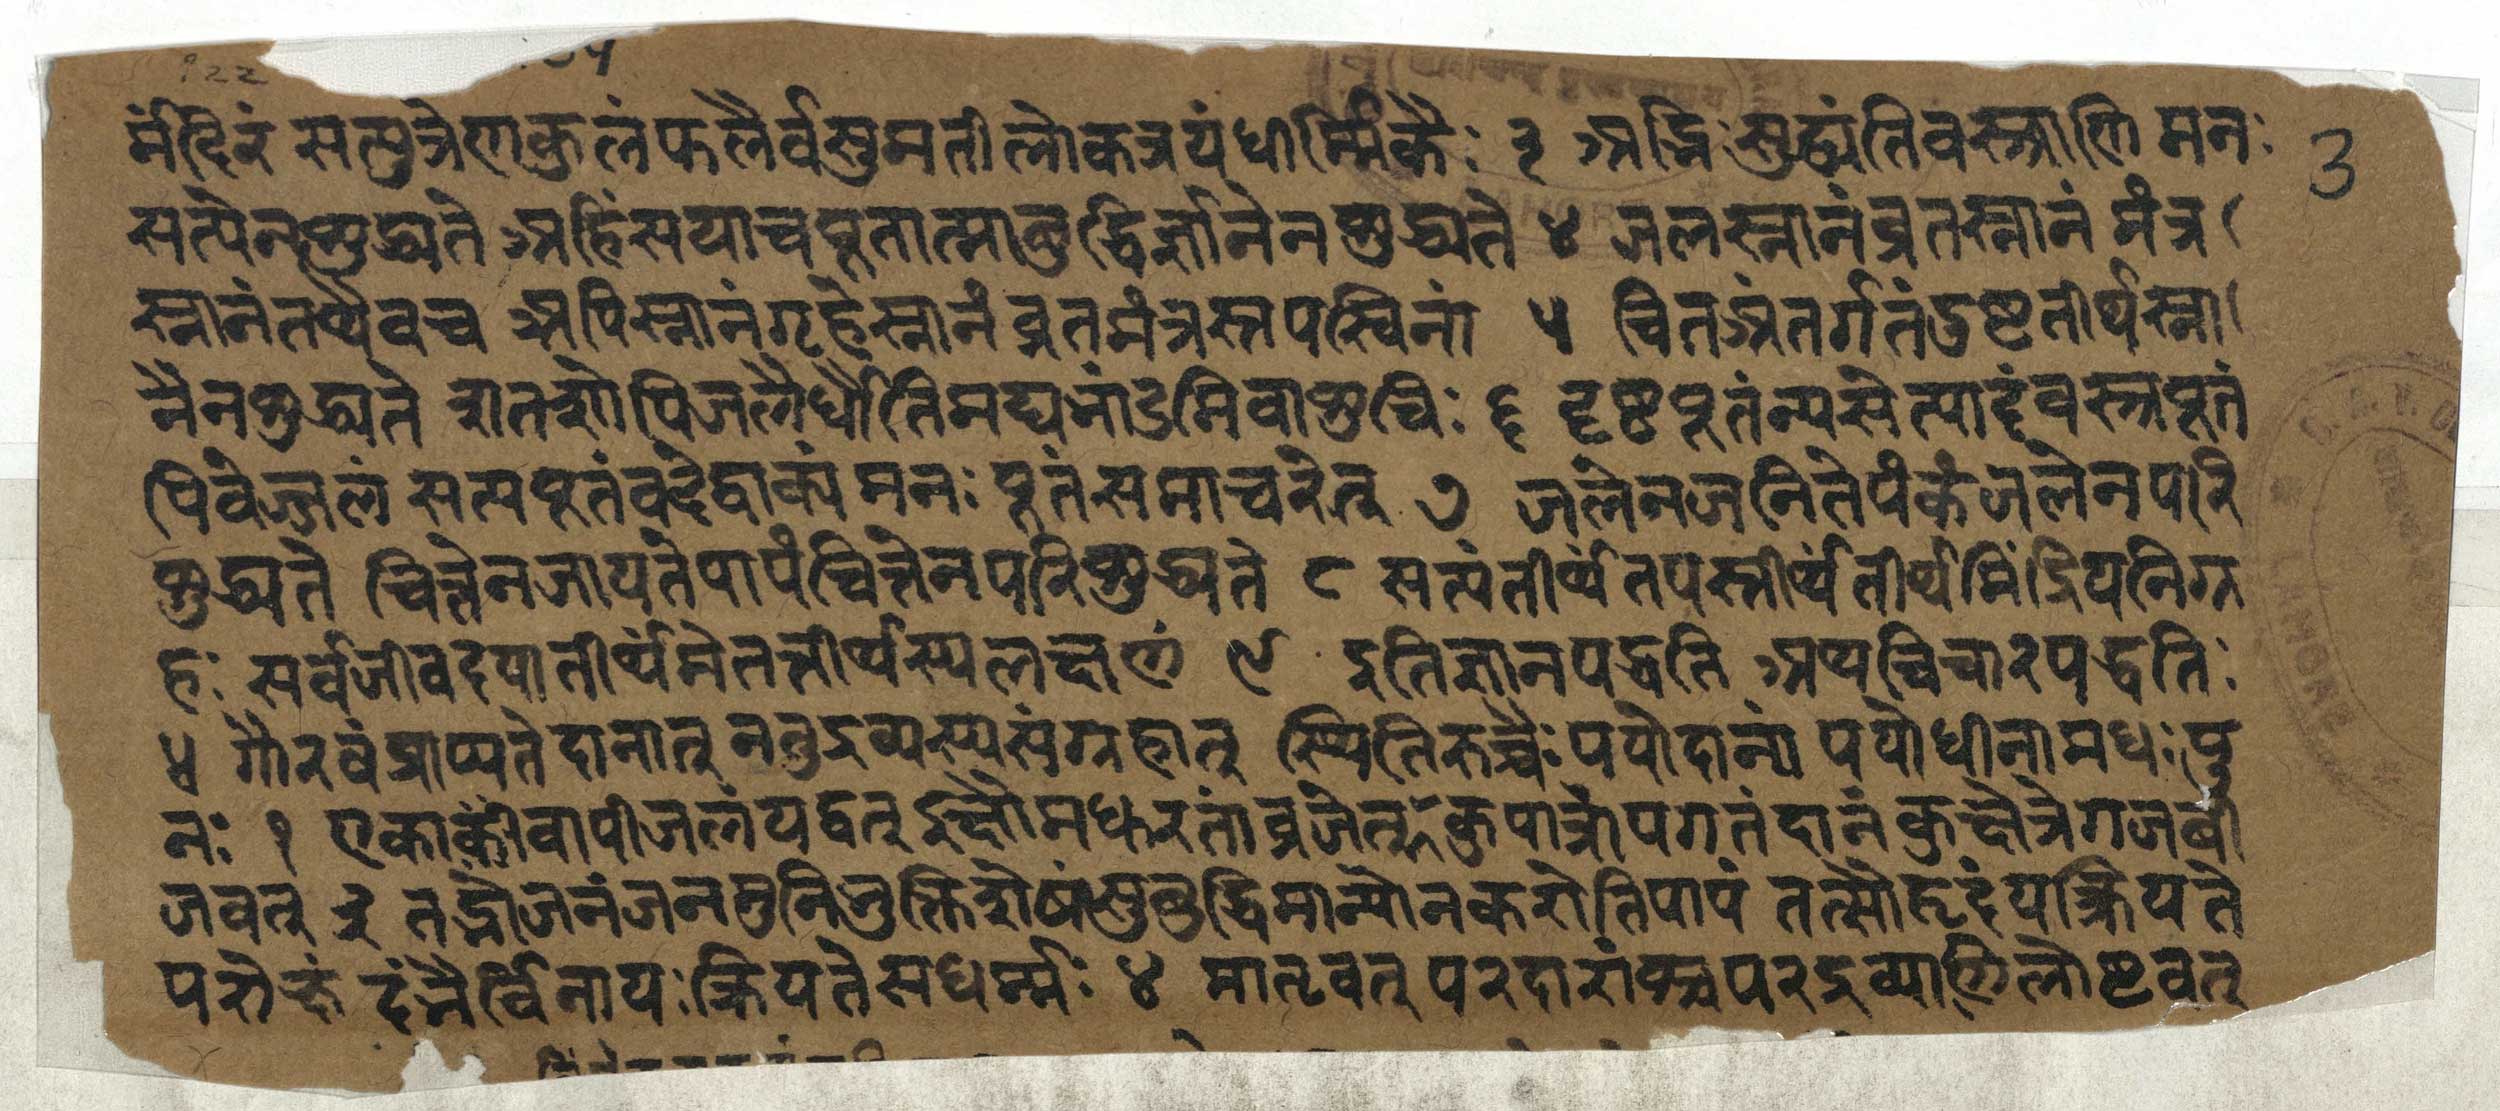 मंदिरं सत्पुत्रेणकुलंफलैर्वसुमतीलोकत्रयंधार्म्मिकैः ३ अद्भिःसुद्ध्यंतिवस्त्राणि मनः
सत्येनशुद्ध्यते अहिंसयाचपूतात्माबुद्धिर्ज्ञानेनशुद्ध्यते ४ जलस्नानंव्रतस्नानं मंत्र
स्नानंतथैवच अपिस्नानंगृहेस्नानं व्रतमंत्रस्तपस्विनां ५ चितअंतर्गतंदुष्टतीर्थस्ना
नैनशुद्ध्यते शतशोपिजलैर्धौतिमद्यभांडमिवाशुचिः ६ दृष्टपूतंन्यसेत्पादंवस्त्रपूतं
पिवेज्जलं सत्यपूतंवदेद्वाक्यं मनःपूतंसमाचरेत् ७ जलेनजनितेपंकंजलेनपरि
शुद्ध्यते चित्तेनजायतेपापंचित्तेनपरिशुद्ध्यते ८ सत्यंतीर्थंतपस्तीर्थंतीर्थमिंद्रियनिग्र
हः सर्वजीवदयातीर्थमेतत्तीर्थस्यलक्षणं ९ इतिज्ञानपद्धति अथविचारपद्धतिः
४ गौरवंप्राप्यतेदानात् नतुद्रव्यस्यसंग्रहात् स्थितिरुच्चैःपयोदानां पयोधीनामधःपु
नः १ एकाकीवापीजलंयद्वत् इक्षौमधुरतांव्रजेत् कुपात्रोपगतंदानं कुक्षेत्रेगजबी
जवत् ३ तद्भोजनंजनमुनिभुक्तिशेषंसुबुद्धिमान्योनकरोतिपापं तत्सौहृदंयत्क्रियते
परोक्षं दंभैर्विनायःक्रियतेसधर्म्मः ४ मातृवत् परदारांश्चपरद्रव्याणिलोष्टवत्
3
LAHORE